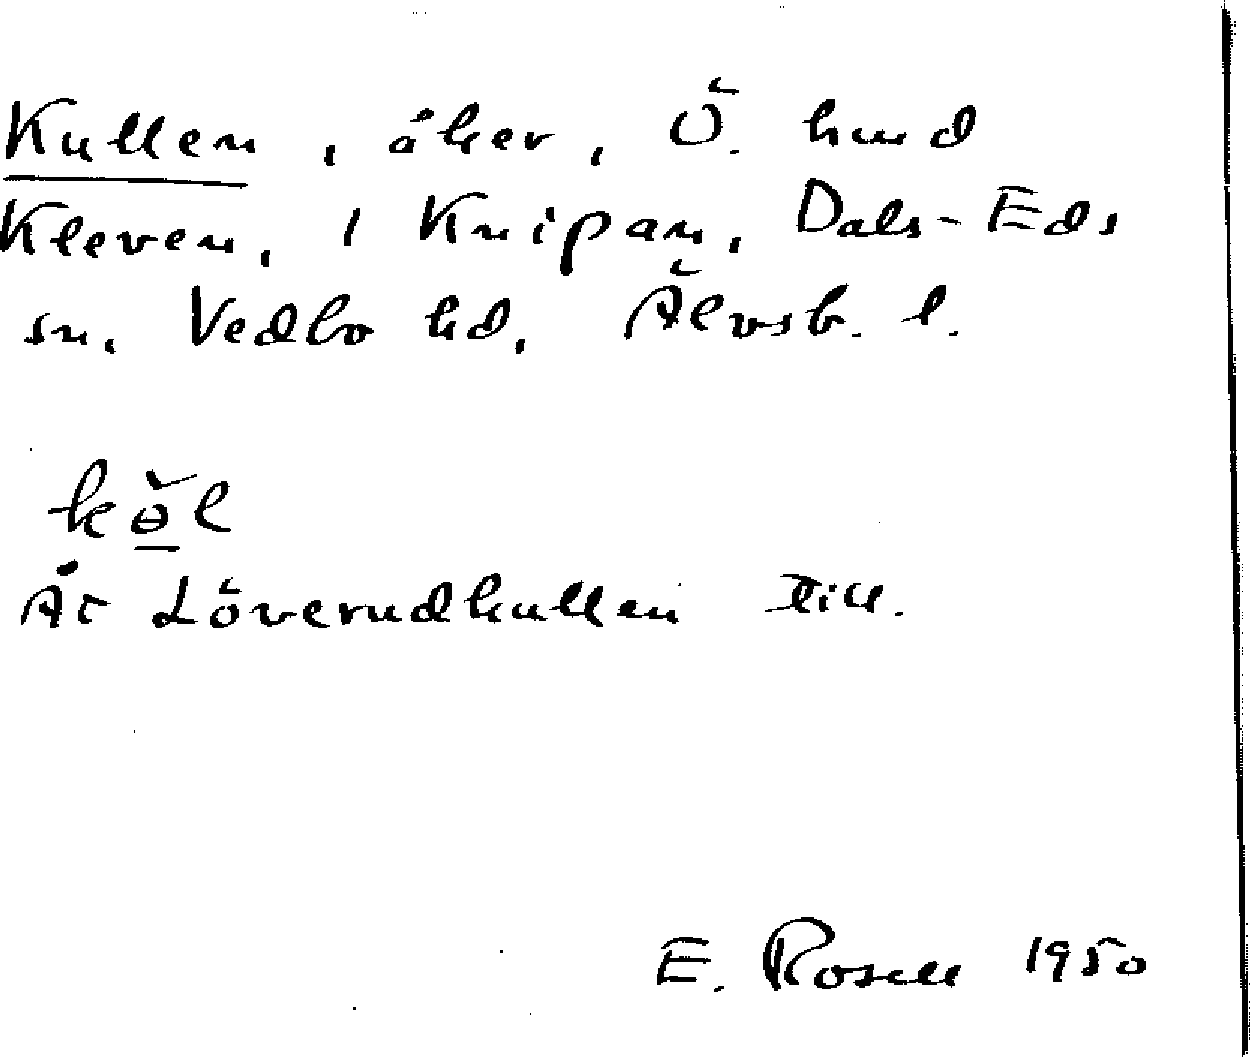 Kullen, åker, Ö. hmd
Kleven, 1 Knipan, Dals-Eds
sn, Vedbo hd, Älvsb. l.
kɵ̀l
Åt Löverudkullen till.
E. Rosell 1950